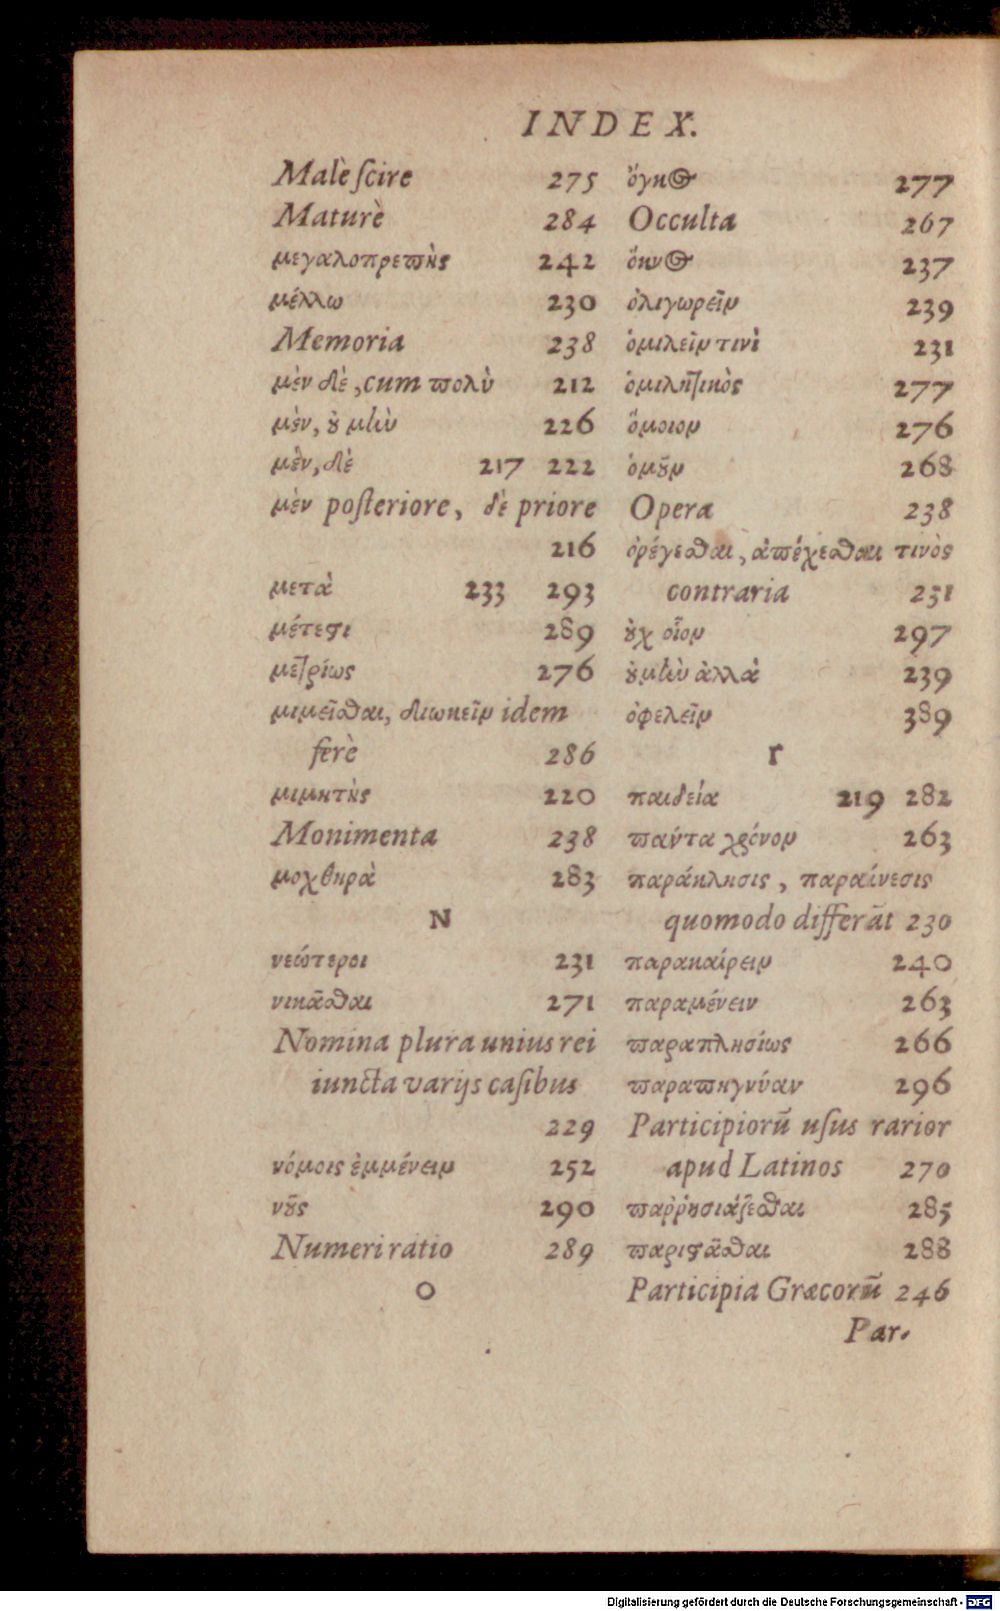 INDEX.
Malè ſcire 275
Maturè 284
μεγαλοπρεπὴς 242
μέλλω 230
Memoria 238
μὲν δὲ, cum πολὺ 212
μὲν, ȣ μὴν 226
μὲν, δὲ 217 222
μὲν poſteriore, δὲ priore
216
μετὰ 233 293
μέτεϛι 289
μετρίως 276
μιμεῖσθαι, διωκεῖν idem
ferè 286
μιμητὴς 220
Monimenta 238
μοχθηρὰ 283
N
νεώτεροι 231
νικᾶσθαι 271
Nomina plura unius rei
iuncta varijs caſibus
229
νόμοις ἐμμένειν 252
νȣ͂ς 290
Numeri ratio 289
O
ὄγκος 277
Occulta 267
ὄκνος 237
ὀλιγωρεῖν 239
ὁμιλεῖν τινὶ 231
ὁμιλητικὸς 277
ὅμοιον 276
ὁμȣ͂ν 268
Opera 238
ὀρέγεσθαι, ἀπέχεσθαι τινὸς
contraria 231
ȣ̓χ οἷον 297
ȣ̓ μὴν ἀλλὰ 239
ὀφελεῖν 389
Γ
παιδεία 219 282
πάντα χρόνον 263
παράκλησις, παραίνεσις
quomodo differāt 230
παρακαίρειν 240
παραμένειν 263
παραπλησίως 266
παραπηγνύαν 296
Participiorū uſus rarior
apud Latinos 270
παῤῥησιάζεσθαι 285
παριϛᾶσθαι 288
Participia Græcorū 246
Par-
Digitalisierung gefördert durch die Deutsche Forschungsgemeinschaft - DFG